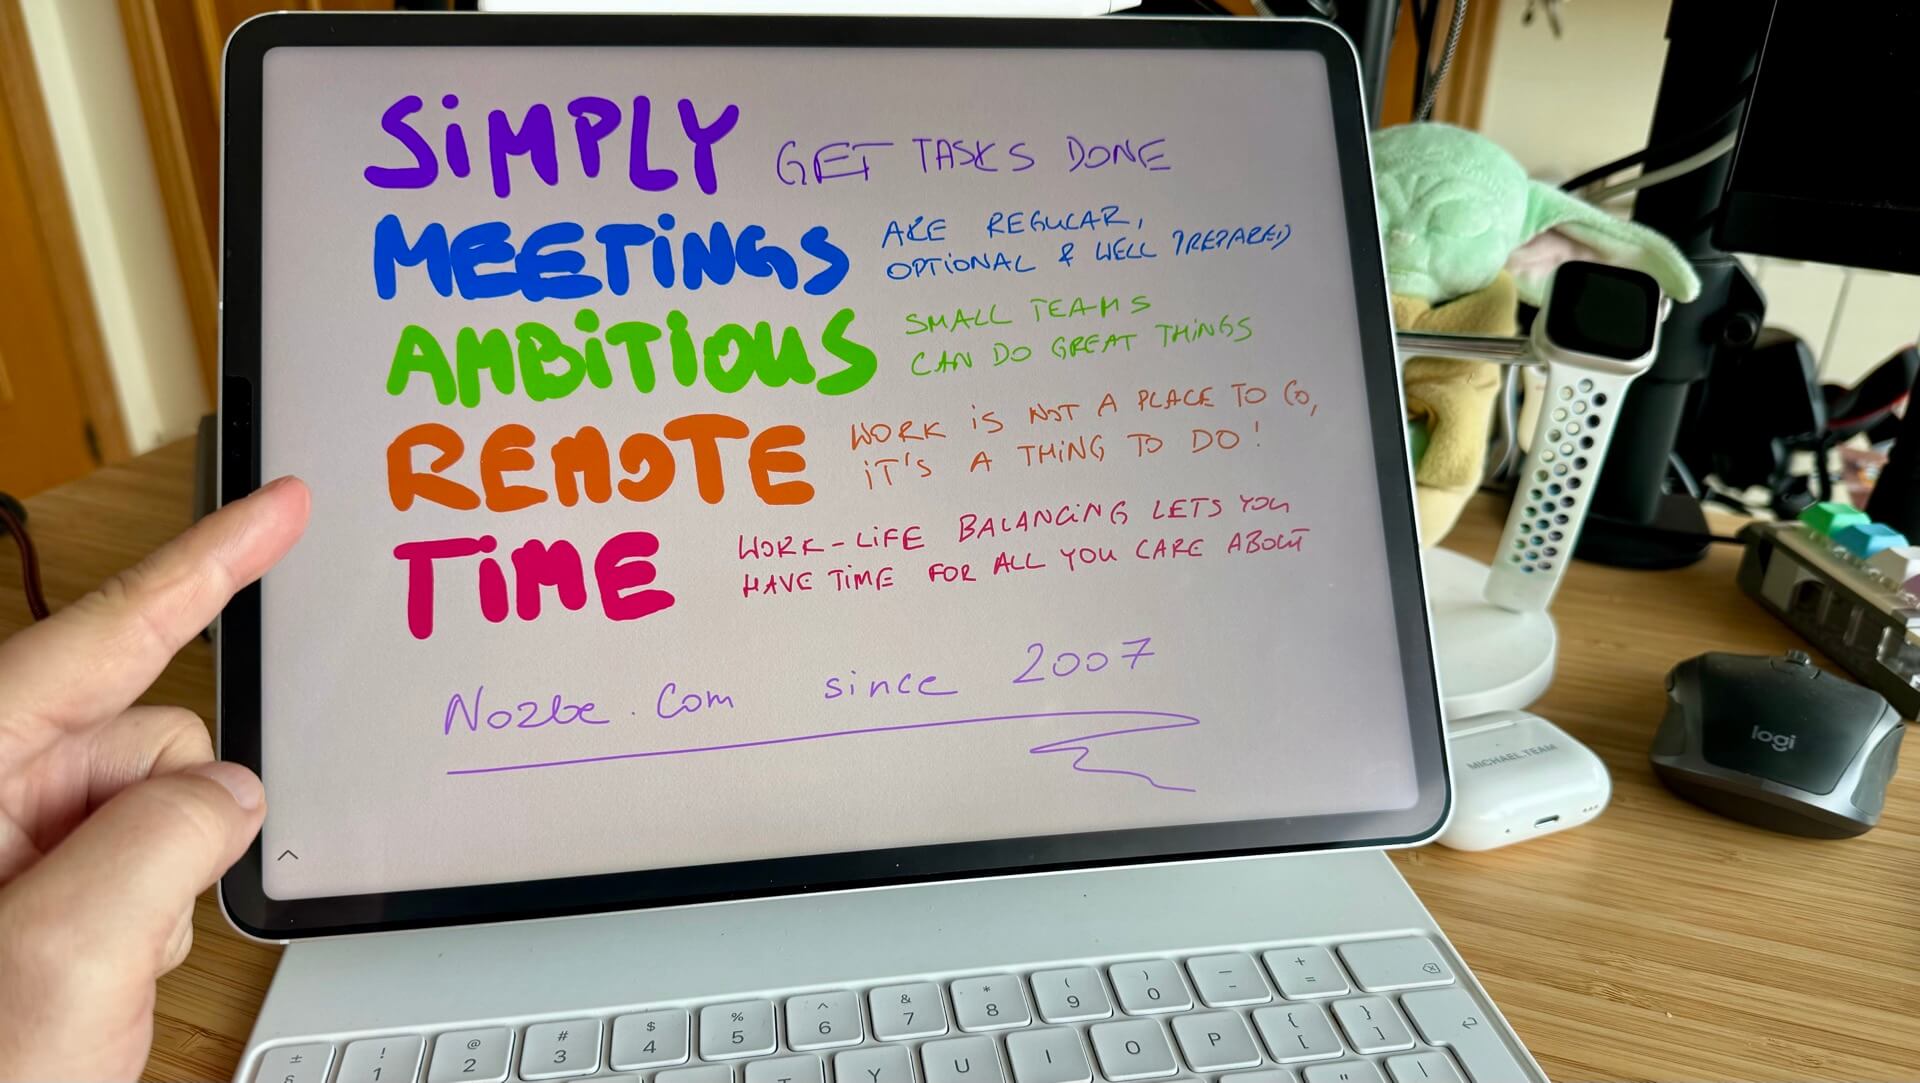 SiMPLY GET TASKS DONE
MEETiNGS ARE REGULAR,
OPTiONAL & WELL PREPARED
AMBiTiOUS SMALL TEAMS
CAN DO GREAT THiNGS
REMOTE WORK iS NOT A PLACE TO GO,
iT'S A THiNG TO DO!
TiME WORK-LiFE BALANCiNG LETS YOU
HAVE TiME FOR ALL YOU CARE ABOUT
Nozbe.com since 2007
logi
MICHAEL.TEAM
± ! @ # $ % ^ & * ( ) — +
§ 1 2 3 4 5 6 7 8 9 0 - =
Y U I O P { [ } ]
" |